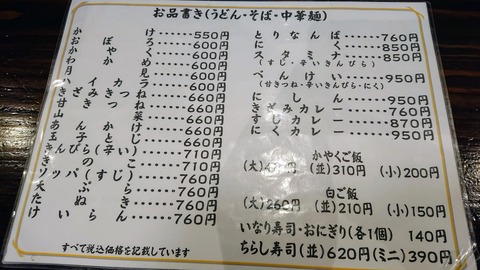 お品書き(うどん・そば・中華麺)
かけ……550円
おぼろ……600円
かやく……600円
わかめ……600円
月見……600円
ハイカラ……600円
きざみきつね……600円
甘きつね……600円
山菜……660円
あんかけ……660円
玉子とじ……660円
きんぴら(辛い)……710円
きのこ……710円
ソッパ(すじ)……760円
天ぷら……760円
たぬき……760円
けいらん……760円
すべて税込価格を記載しています
とりなんば……760円
にく……850円
スタミナ……850円
(すじ・辛いきんぴら)
べんけい……950円
(甘きつね・きんぴら・にく)
にしん……950円
きざみカレー……760円
すじカレー……870円
にくカレー……950円
かやくご飯
(大)円 (並)310円 (小)200円
白ご飯
(大)260円 (並)210円 (小)150円
いなり寿司・おにぎり(各1個) 140円
ちらし寿司(並)620円(ミニ)390円